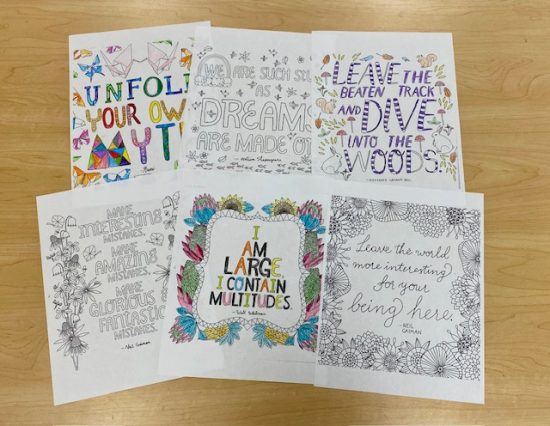 UNFOL
YOUR OWN
MYT
WE ARE SUCH
AS
DREAMS
ARE MADE
-William Shakespeare
LEAVE THE
BEATEN TRACK
AND DIVE
INTO THE
WOODS.
MAKE
INTERESTING
MISTAKES.
MAKE
AMAZING
MISTAKES.
MAKE
GLORIOUS &
FANTASTIC
MISTAKES.
-Neil Gaiman
I
AM
LARGE,
I CONTAIN
MULTITUDES.
-Walt Whitman
Leave the world
more interesting
for your
being here.
-NEIL
GAIMAN